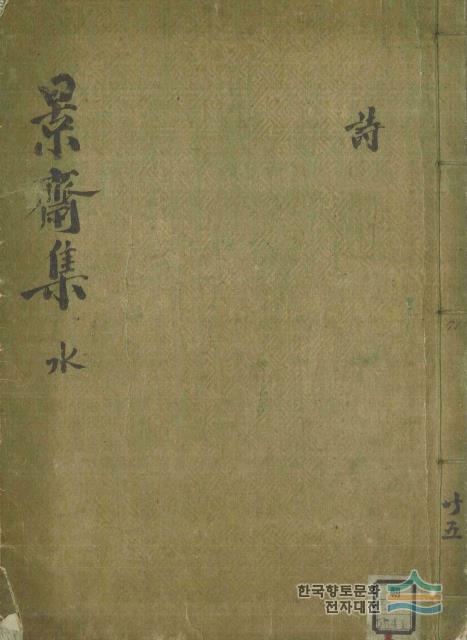 景齋集 水
詩
廿五
한국향토문화
전자대전